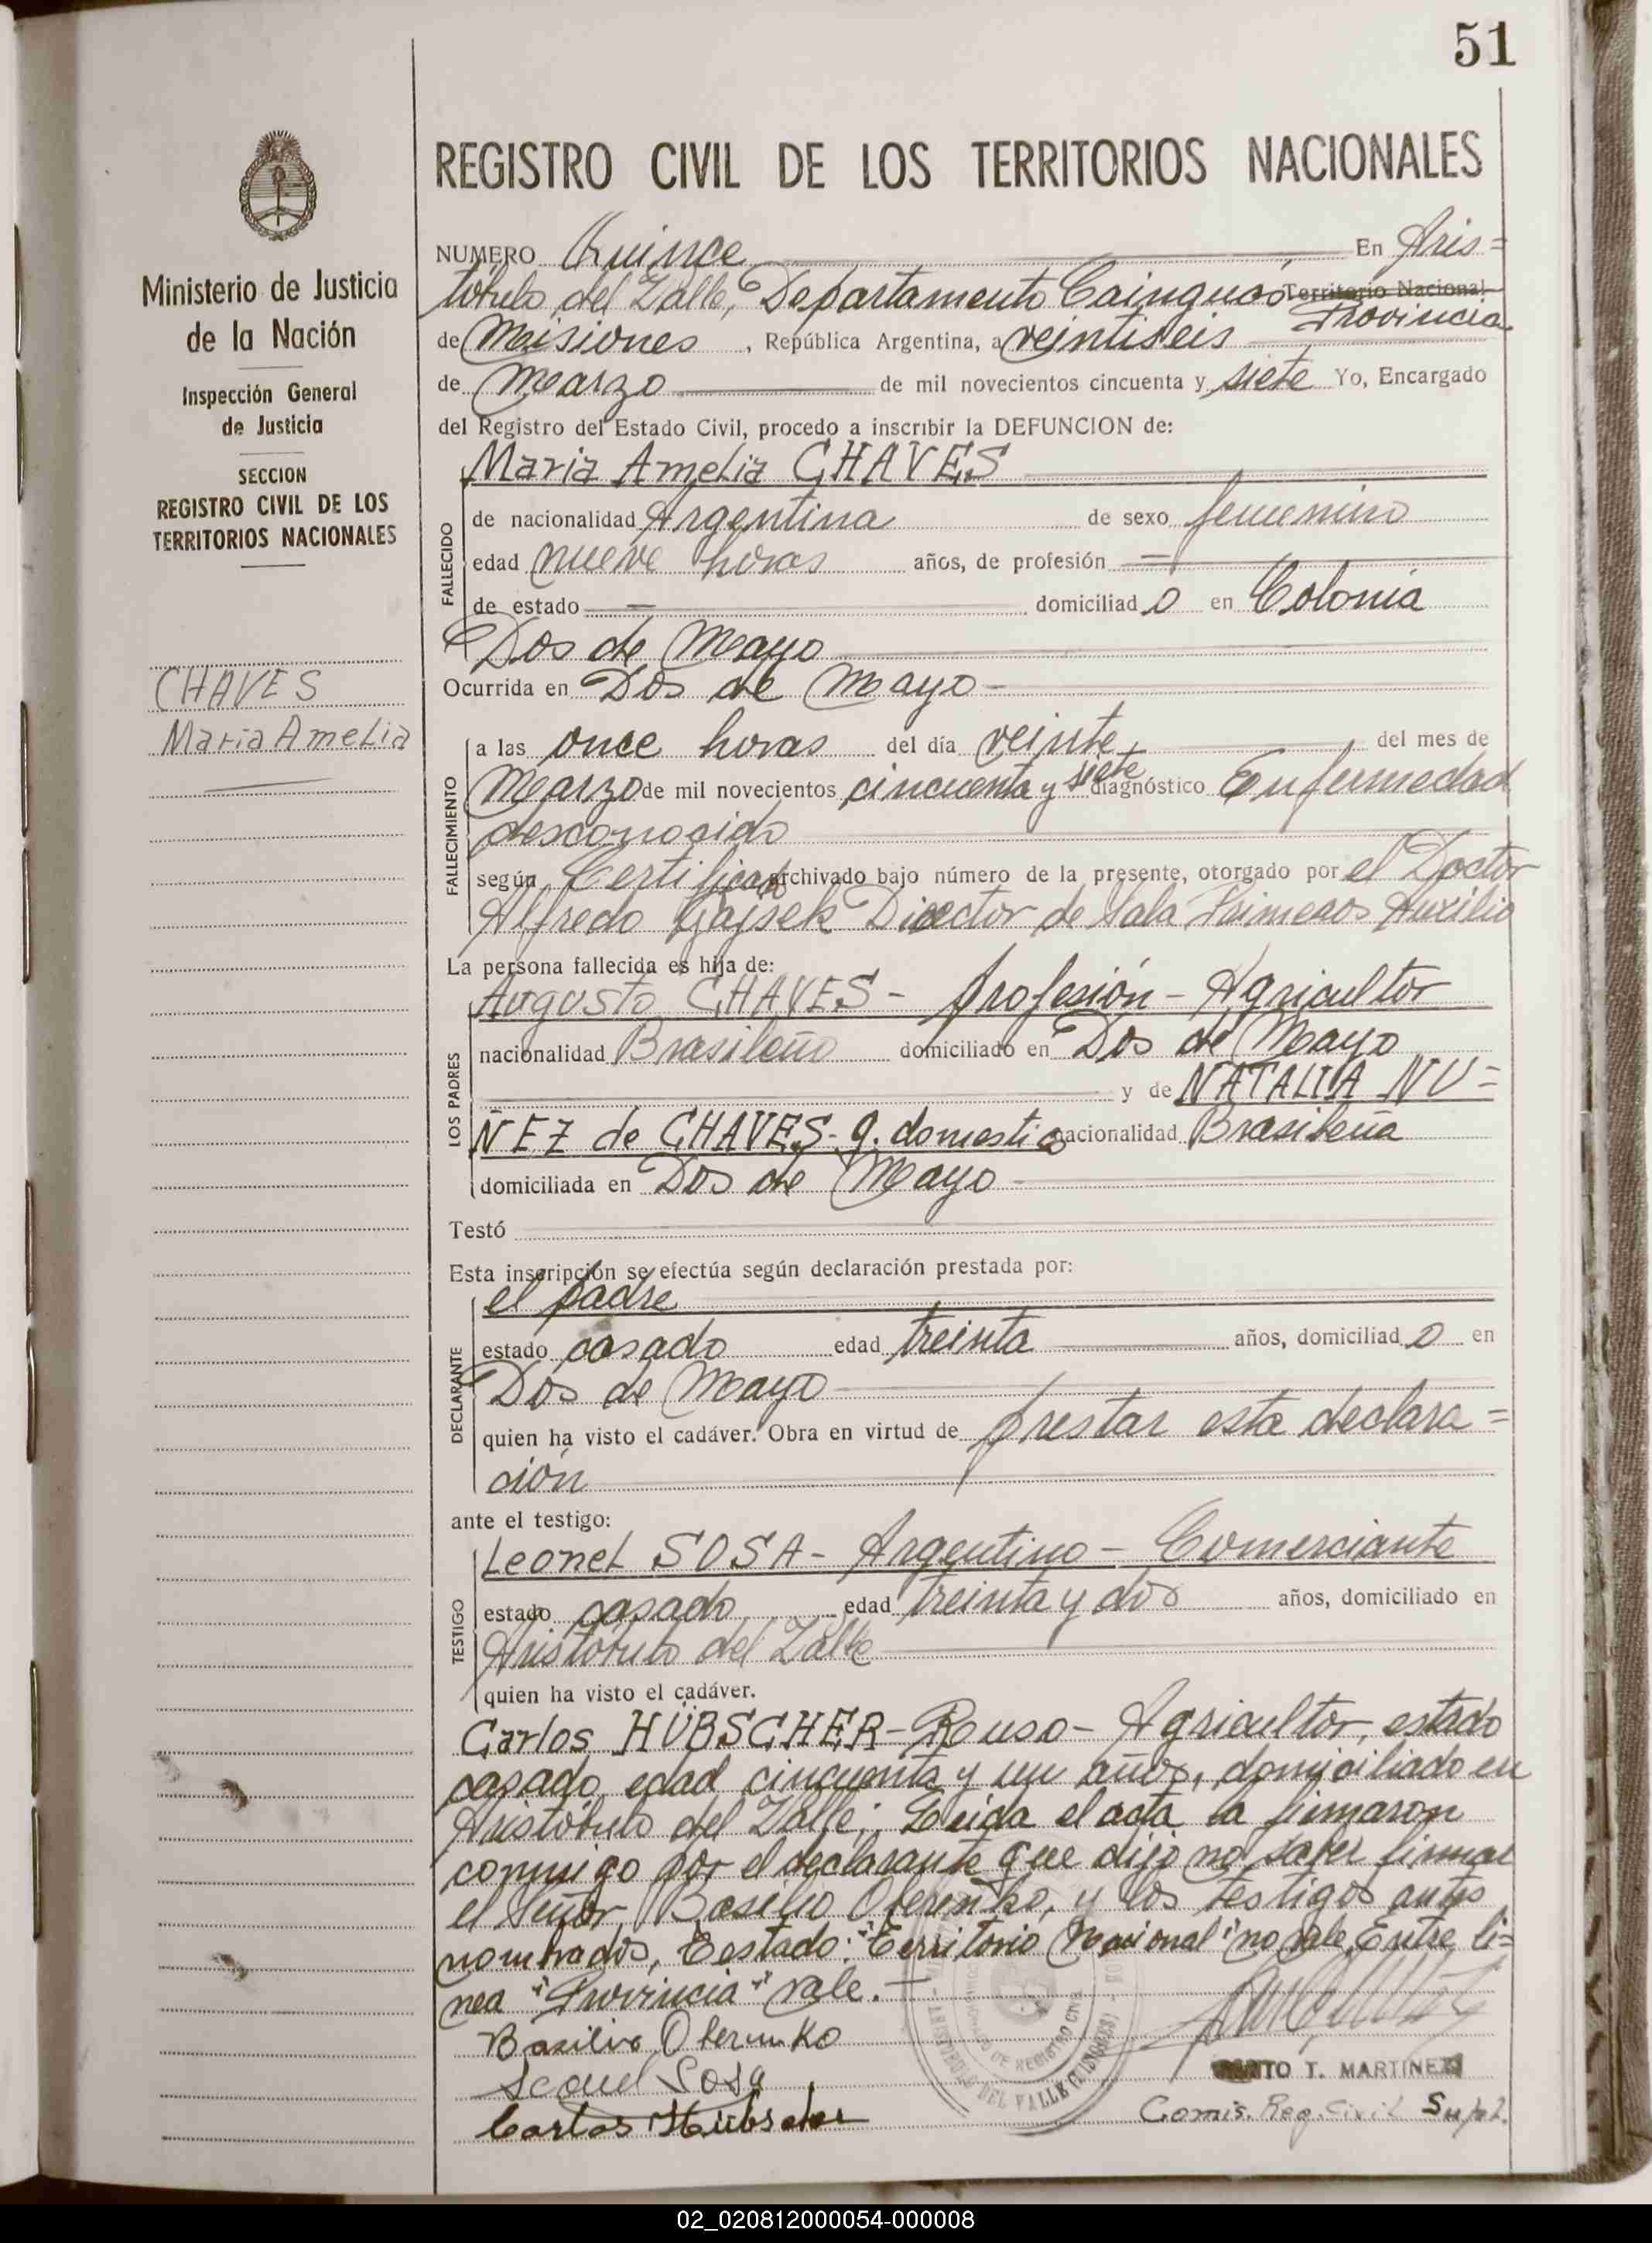 51
REGISTRO CIVIL DE LOS TERRITORIOS NACIONALES
Ministerio de Justicia
de la Nación
Inspección General
de Justicia
SECCION
REGISTRO CIVIL DE LOS
TERRITORIOS NACIONALES
CHAVES
Maria Amelia
NUMERO Quince En Aris=
tóbulo del Valle, Departamento Cainguás Territorio Nacional
Provincia
de Misiones, República Argentina, a veintiseis
de Marzo de mil novecientos cincuenta y siete Yo, Encargado
del Registro del Estado Civil, procedo a inscribir la DEFUNCION de:
FALLECIDO
Maria Amelia CHAVES
de nacionalidad Argentina de sexo femenino
edad nueve horas años, de profesión —
de estado — domiciliad o en Colonia
Dos de Mayo
Ocurrida en Dos de Mayo -
FALLECIMIENTO
a las once horas del día veinte, del mes de
Marzo de mil novecientos cincuenta y siete diagnóstico Enfermedad
desconocido
según Certificado archivado bajo número de la presente, otorgado por el Doctor
Alfredo Gajsek Director de Sala Primeros Auxilio
La persona fallecida es hija de:
LOS PADRES
Augusto CHAVES - profesión - Agricultor
nacionalidad Brasileño domiciliado en Dos de Mayo
y de NATALIA NU=
ÑEZ de CHAVES - q. domestic nacionalidad Brasileña
domiciliada en Dos de Mayo
Testó
Esta inscripción se efectúa según declaración prestada por:
DECLARANTE
el padre
estado casado edad treinta años, domiciliad o en
Dos de Mayo
quien ha visto el cadáver. Obra en virtud de prestar esta declara=
ción
ante el testigo:
TESTIGO
Leonel SOSA - Argentino - Comerciante
estado casado edad treinta y dos años, domiciliado en
Aristóbulo del Valle
quien ha visto el cadáver.
Carlos HÜBSCHER - Ruso - Agricultor, estado
casado, edad cincuenta y un años, domiciliado en
Aristóbulo del Valle; Leida el acta la firmaron
conmigo por el declarante que dijo no saber firmar
el Señor Basilio Oberinko, y los testigos antes
nombrados, Testado: "Territorio Nacional" no vale, Entre li=
nea "Provincia" vale. -
Basilio
Sosa
Carlos Hübscher
TO T. MARTINEZ
Comis. Reg. Civil Supl.
ARISTOBULO DEL VALLE (MISIONES)
DE REGISTRO CIVIL
02_020812000054-000008